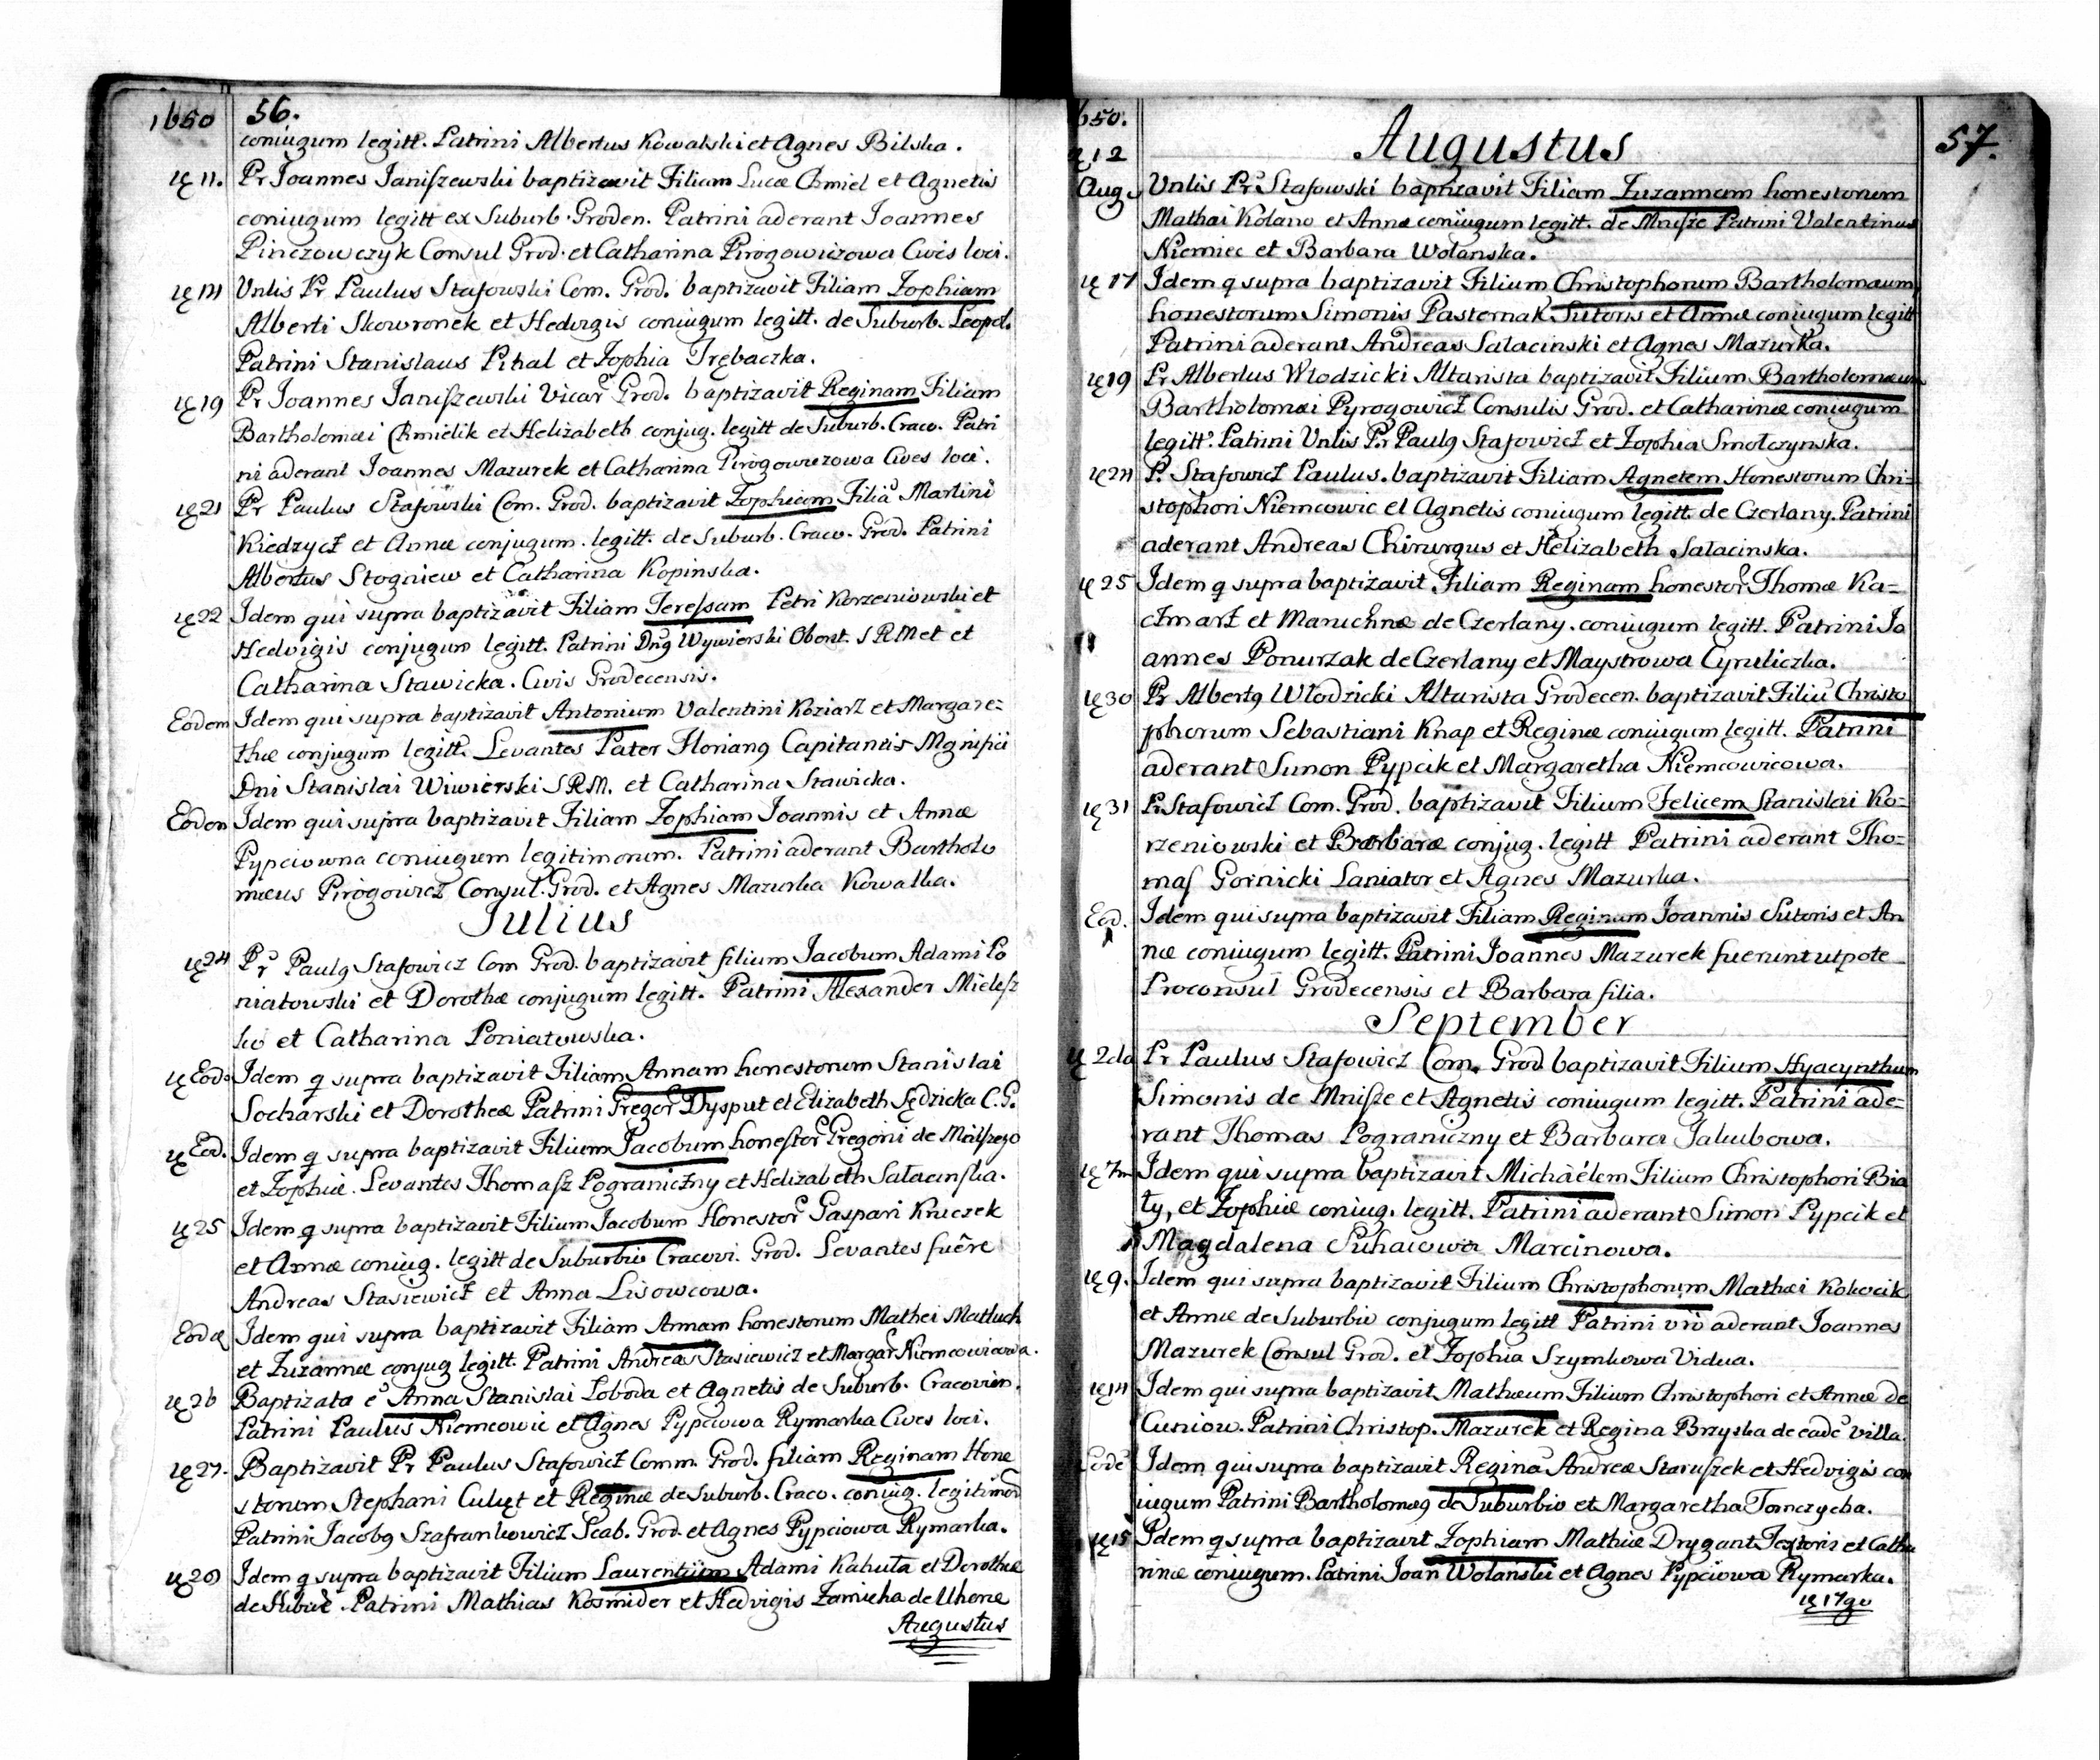 1650 56.
coniugum legitt. Patrini Albertus Kowalski et Agnes Bilska.
11. Pr Joannes Janiszewski baptizavit Filium Lucæ Chmiel et Agnetis
coniugum legitt ex Suburb. Groden. Patrini aderant Joannes
Pinczowczyk Consul Grod. et Catharina Pirogowiczowa Cives loci.
Vnlis Pr Paulus Stafowski Com. Grod. baptizavit Filiam Zophiam
Alberti Skowronek et Hedvigis coniugum legitt. de Suburb. Leopol.
Patrini Stanislaus Pihal et Zophia Trębaczka.
19 Pr Joannes Janiszewski Vicar Grod. baptizavit Reginam Filiam
Bartholomæi Chmielik et Helizabeth conjug. legitt de Suburb. Craco. Patri
ni aderant Joannes Mazurek et Catharina Pirogowiczowa Cives loci.
21 Pr Paulus Stafowski Com. Grod. baptizavit Zophiam Filiã Martini
Kiedzycz et Annæ conjugum legitt. de Suburb. Craco. Grod. Patrini
Albertus Stogniew et Catharina Kopinska.
22 Idem qui supra baptizavit Filiam Teressam Petri Korzeniowski et
Hedvigis conjugum legitt. Patrini Dng Wywierski Obent. S R M et et
Catharina Stawicka. Civis Grodecensis.
Eodem Idem qui supra baptizavit Antonium Valentini Koziarz et Margare=
thæ conjugum legitt. Levantes Pater Floriang Capitaneus Mgnifici
Dni Stanislai Wiwierski S R M. et Catharina Stawicka.
Eodem Idem qui supra baptizavit Filiam Zophiam Joannis et Annæ
Pypciowna coniugum legitimorum. Patrini aderant Bartholo
mæus Pirogowicz Consul. Grod. et Agnes Mazurka Kowalka.
Julius
24 Pr Paulg Stafowicz Com Grod. baptizavit filium Jacobum Adami Po
niatowski et Dorothæ conjugum legitt. Patrini Alexander Mielesz
ko et Catharina Poniatowska.
Eod. Idem q supra baptizavit Filiam Annam honestorum Stanislai
Socharski et Dorotheæ Patrini Gregor Dysput et Elizabeth Sędzicka C. G.
Eod. Idem q supra baptizavit Filium Jacobum honestor Gregorii de Malszego
et Zophiæ. Levantes Thomasz Pograniczny et Helizabeth Salacinska.
25 Idem q supra baptizavit Filium Jacobum Honestor Gaspari Kruczek
et Annæ coniug. legitt de Suburbio Cracovi. Grod. Levantes fuêre
Andreas Stasiewicz et Anna Lisowcowa.
Idem qui supra baptizavit Filiam Annam honestorum Mathei Matluch
et Zuzannæ conjug legitt. Patrini Andreas Stasiewicz et Margar Niemcowicowa.
26 Baptizata e Anna Stanislai Loboda et Agnetis de Suburb. Cracovien.
Patrini Paulus Niemcowic et Agnes Pypciowa Rymarka Cives loci.
27. Baptizavit Pr Paulus Stafowicz Comm. Grod. filiam Reginam Hone
storum Stephani Culyt et Reginæ de Suburb. Craco. coniug. legitimor
Patrini Jacobg Szafrankowicz Scab. Grod. et Agnes Pypciowa Rymarka.
Idem q supra baptizavit Filium Laurentium Adami Kahuta et Dorotheæ
Patrini Mathias Kosmider et Hedvigis Zamicha de Uhone
Augustus
650. 57.
Augustus
12
Aug. Vnlis Pr Stafowski baptizavit Filiam Zuzannam honestorum
Mathai Kolano et Annæ coniugum legitt. de Mnisze Patrini Valentinus
Niemiec et Barbara Wolanska.
17 Idem q supra baptizavit Filium Christophorum Bartholomæum
honestorum Simonis Pasternak Sutoris et Annæ coniugum legitt
Patrini aderant Andreas Salacinski et Agnes Mazurka.
19 Pr Albertus Wlodzicki Altarista baptizavit Filium Bartholomæum
Bartholomæi Pyrogowicz Consulis Grod. et Catharinæ coniugum
legitt. Patrini Vnlis Pr Paulg Stafowicz et Zophia Smolczynska.
24 P. Stafowicz Paulus. baptizavit Filiam Agnetem Honestorum Chri=
stophori Niemcowic et Agnetis coniugum legitt. de Czerlany. Patrini
aderant Andreas Chirurgus et Helizabeth Salacinska.
25 Idem q supra baptizavit Filiam Reginam honestor Thomæ Ka=
czmarz et Maruchnæ de Czerlany. coniugum legitt. Patrini Jo
annes Ponurzak de Czerlany et Maystrowa Cyruliczka.
30 Pr Albertg Wlodzicki Altarista Grodecen. baptizavit Filiũ Christo
phorum Sebastiani Knap et Reginæ coniugum legitt. Patrini
aderant Simon Pypcik et Margaretha Niemcowicowa.
31 Pr Stafowicz Com. Grod. baptizavit Filium Felicem Stanislai Ko=
rzeniowski et Barbaræ conjug. legitt Patrini aderant Tho=
mas Gornicki Laniator et Agnes Mazurka.
Eod. Idem qui supra baptizavit Filiam Reginam Joannis Sutoris et An
næ coniugum legitt. Patrini Joannes Mazurek fuerunt utpote
Proconsul Grodecensis et Barbara filia.
September
2da Pr Paulus Stafowicz Com. Grod baptizavit Filium Hyacynthum
Simonis de Mnisze et Agnetis coniugum legitt. Patrini ade=
rant Thomas Pograniczny et Barbara Jakubowa.
7m Idem qui supra baptizavit Michaëlem Filium Christophori Bia
ły, et Zophiæ coniug. legitt. Patrini aderant Simon Pypcik et
Magdalena Suhaiowa Marcinowa.
9. Idem qui supra baptizavit Filium Christophorum Mathæi Kokocik
et Annæ de Suburbio conjugum legitt Patrini vrò aderant Joannes
Mazurek Consul Grod. et Zophia Szymkowa Vidua.
14 Idem qui supra baptizavit Mathæum Filium Christophori et Annæ de
Cuniow. Patrini Christop. Mazurek et Regina Brzyska de eadẽ villa.
Eodẽ Idem qui supra baptizavit Reginã Andreæ Staruszek et Hedvigis con
iugum Patrini Bartholomeg de Suburbio et Margaretha Tomczycha.
15 Idem q supra baptizavit Zophiam Mathiæ Drygant Textoris et Catha
rinæ coniugum. Patrini Joan Wolanski et Agnes Pypciowa Rymarka.
17go